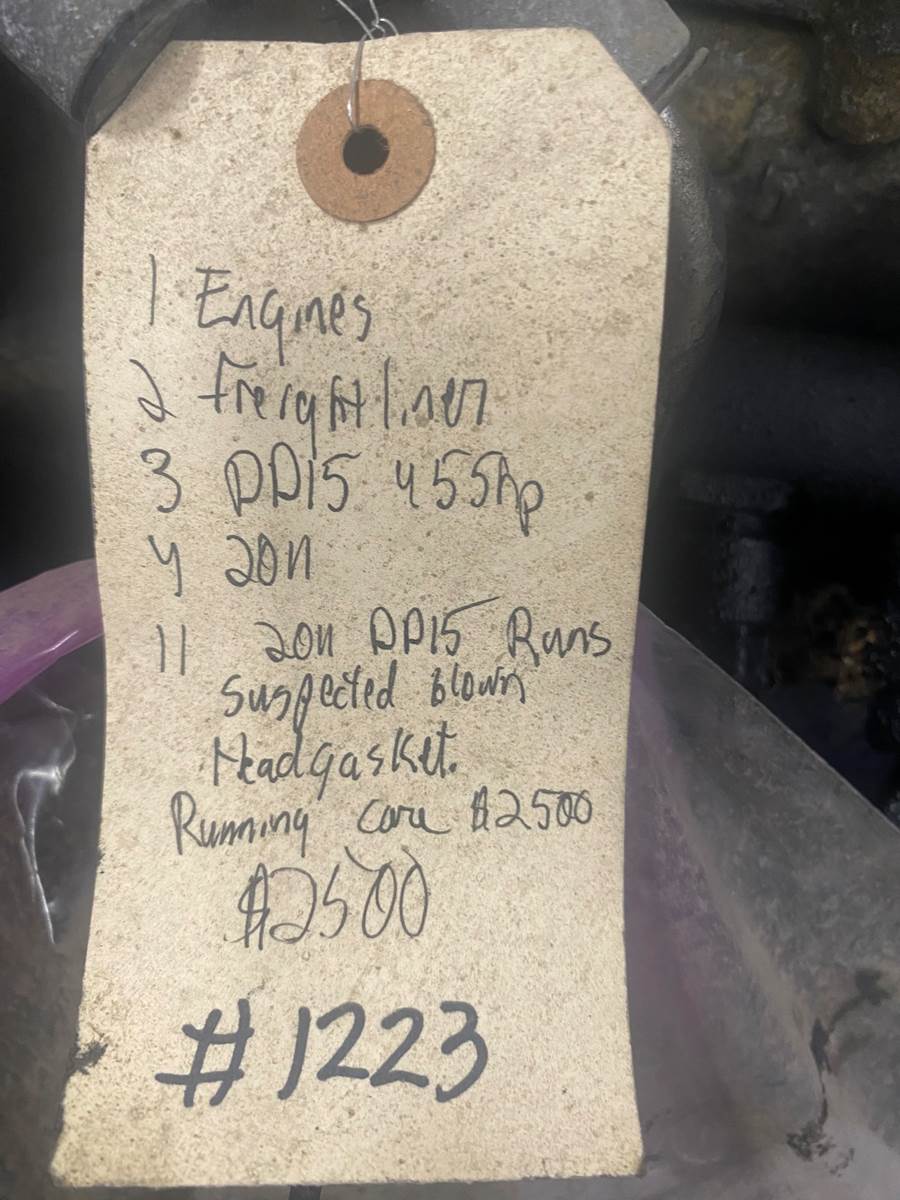 1 Engines
2 Freightliner
3 DD15 455hp
4 2011
11 2011 DD15 Runs
Suspected blown
Headgasket.
Running core $2500
$2500
#1223